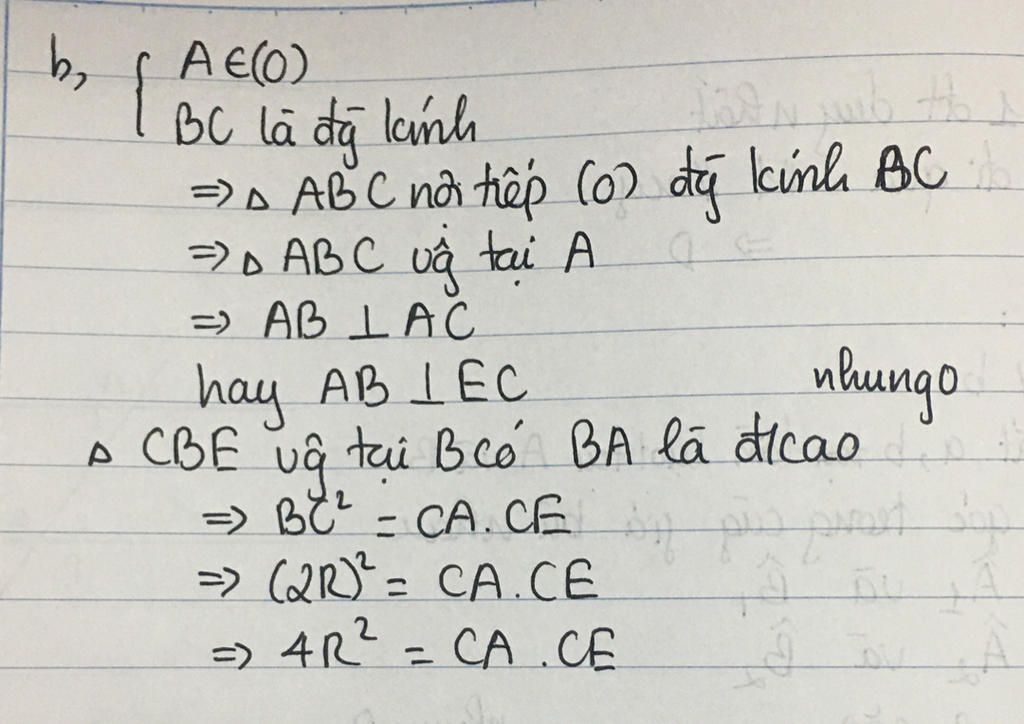 b, { A ∈ (O)
BC là đg̃ kính
=> Δ ABC nội tiếp (O) đg̃ kính BC
=> Δ ABC vg̃ tại A
=> AB ⊥ AC
hay AB ⊥ EC
nhungo
Δ CBE vg̃ tại B có BA là đ/cao
=> BC² = CA.CE
=> (2R)² = CA.CE
=> 4R² = CA.CE